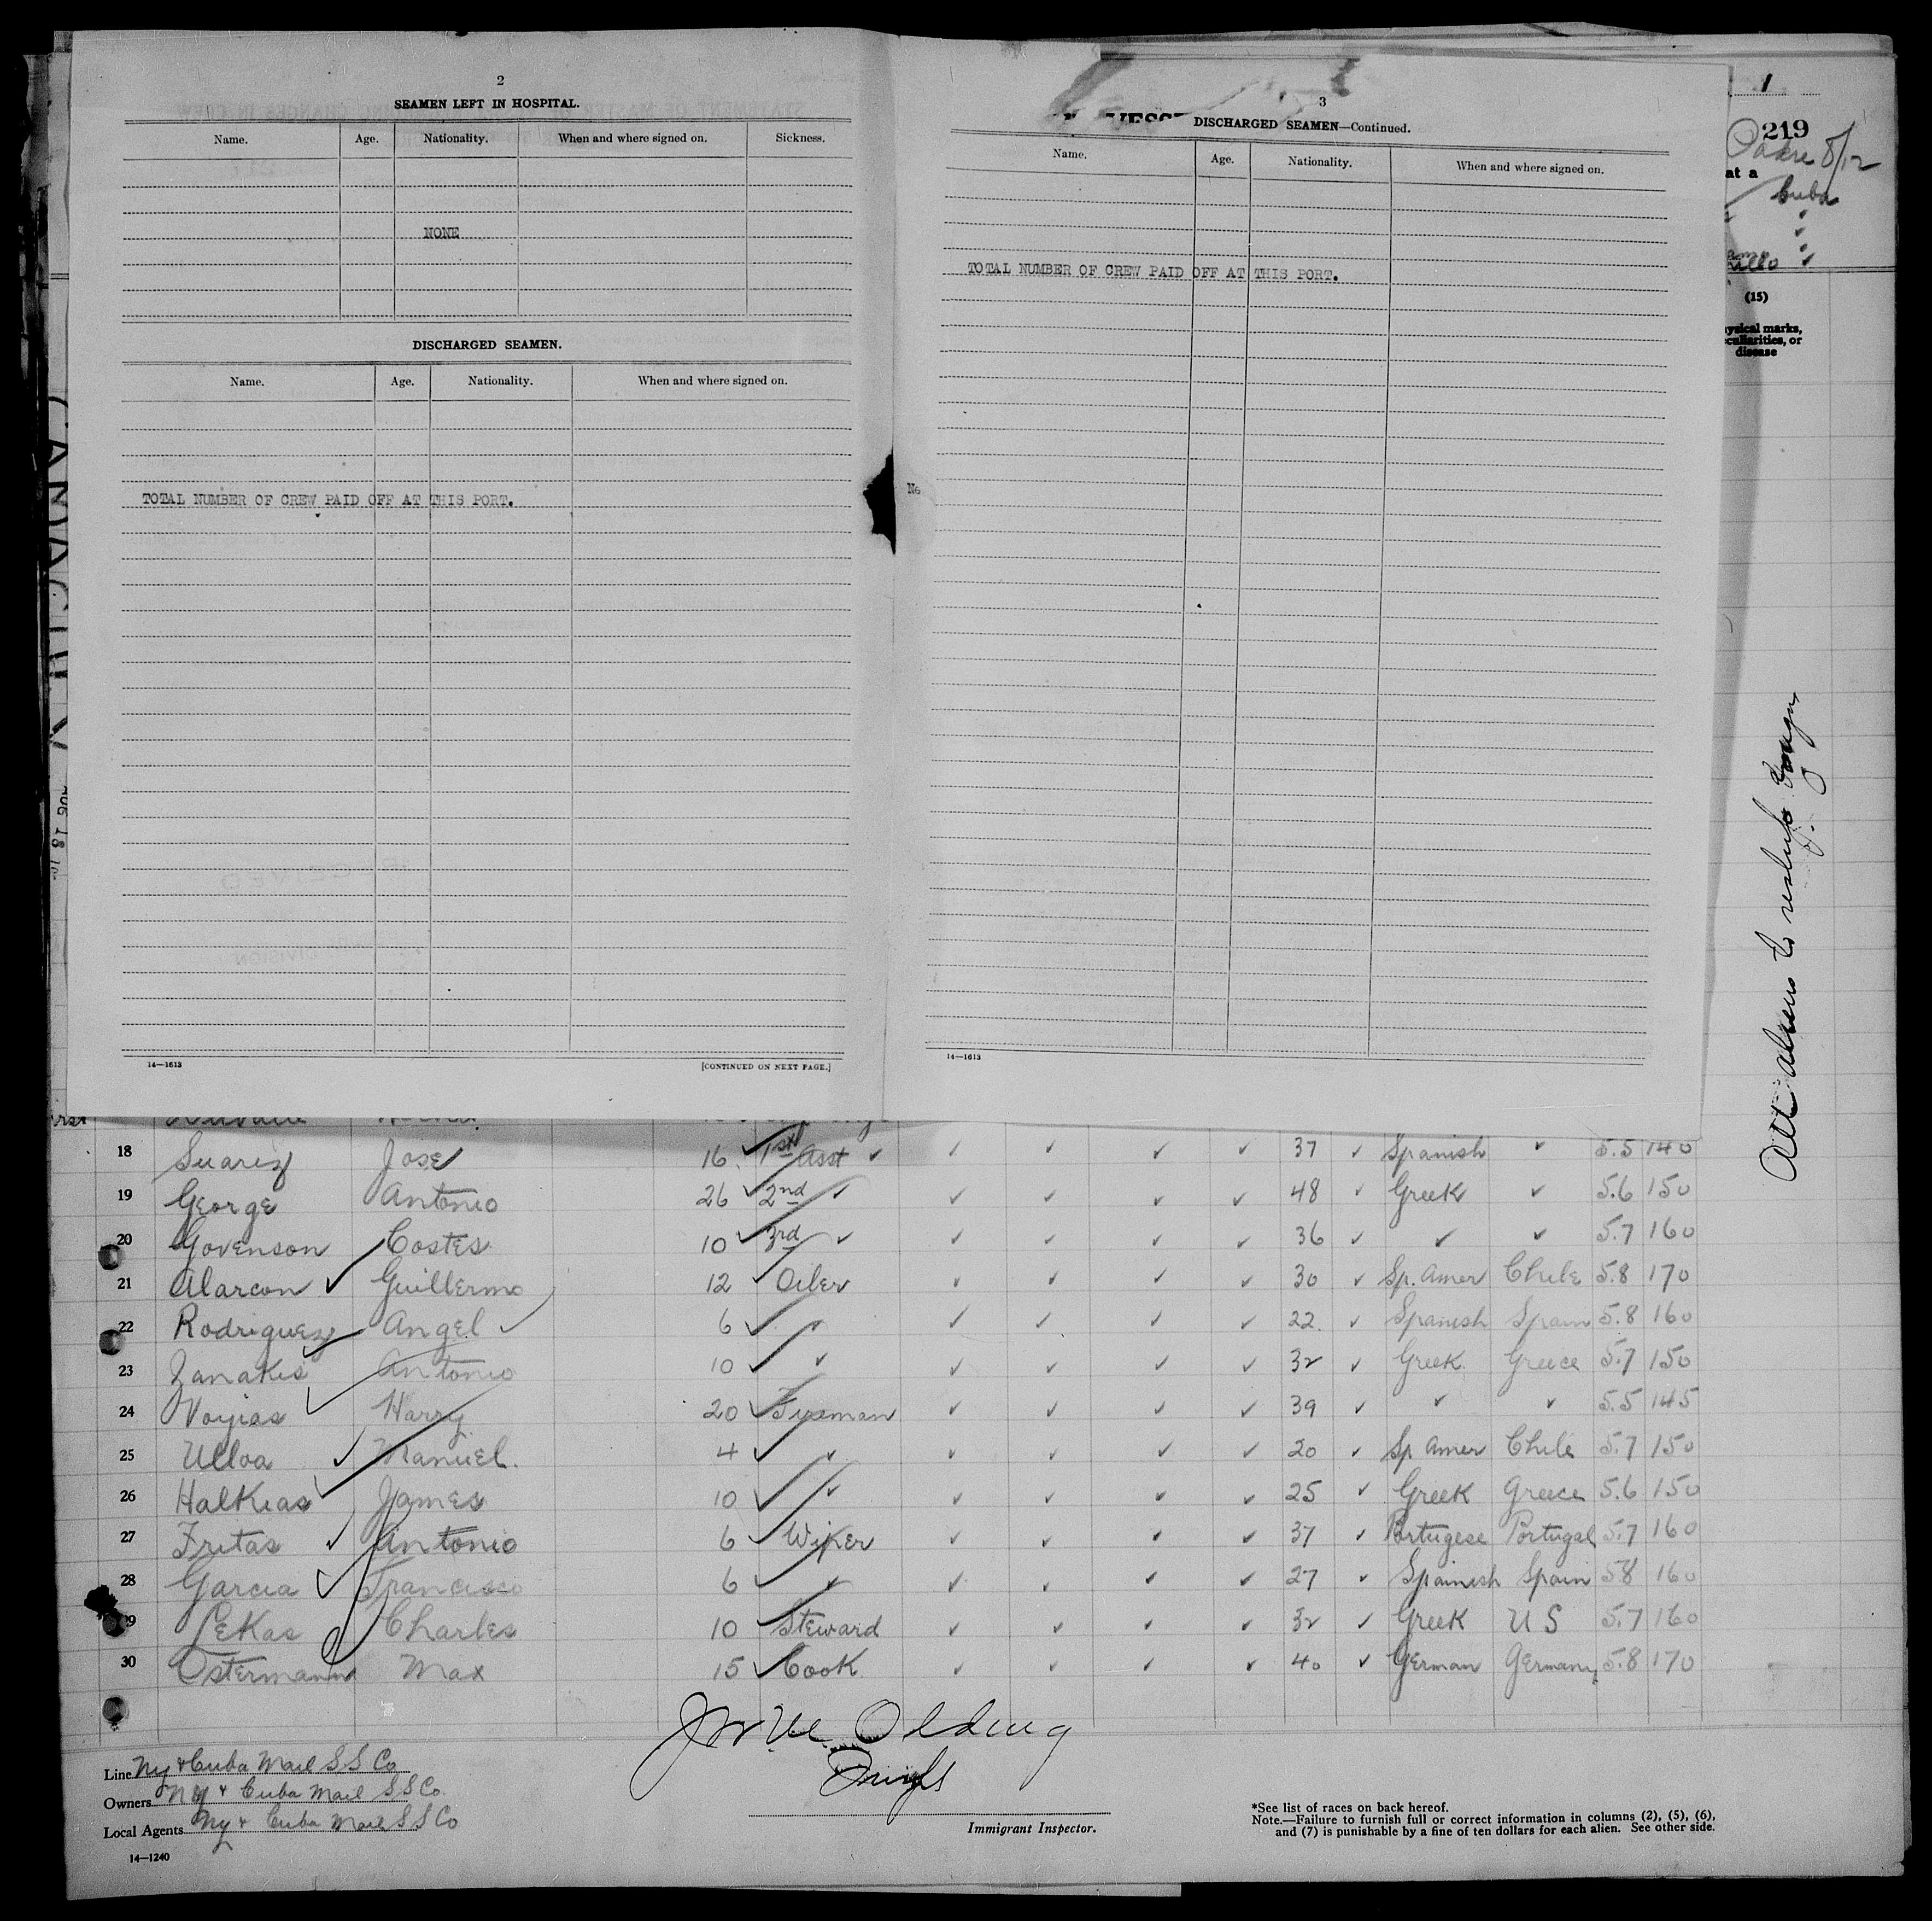 2
SEAMEN LEFT IN HOSPITAL.
Name. Age. Nationality. When and where signed on. Sickness.
NONE
DISCHARGED SEAMEN.
Name. Age. Nationality. When and where signed on.
TOTAL NUMBER OF CREW PAID OFF AT THIS PORT.
14—1613 [CONTINUED ON NEXT PAGE.]
3
DISCHARGED SEAMEN—Continued.
Name. Age. Nationality. When and where signed on.
No
TOTAL NUMBER OF CREW PAID OFF AT THIS PORT.
14—1613
1
219
8/12
at a
Cuba
(15)
ysical marks,
eculiarities, or
disease
All aliens to reship foreign
18 Suarez Jose 16 ✓ 1st Asst ✓ ✓ ✓ ✓ ✓ 37 ✓ Spanish ✓ 5.5 140
19 George Antonio 26 ✓ 2nd ✓ ✓ ✓ ✓ ✓ 48 ✓ Greek ✓ 5.6 150
20 Govenson Costes 10 ✓ 3rd ✓ ✓ ✓ ✓ ✓ 36 ✓ ✓ ✓ 5.7 160
21 Alarcon ✓ Guillermo 12 ✓ Oiler ✓ ✓ ✓ ✓ 30 ✓ Sp. Amer Chile 5.8 170
22 Rodriguez ✓ Angel ✓ 6 ✓ ✓ ✓ ✓ ✓ ✓ 22 ✓ Spanish Spain 5.8 160
23 Zanakis Antonio 10 ✓ ✓ ✓ ✓ ✓ ✓ 32 ✓ Greek Greece 5.7 150
24 Voyias ✓ Harry 20 ✓ Fireman ✓ ✓ ✓ ✓ 39 ✓ ✓ ✓ 5.5 145
25 Ulloa ✓ Manuel. 4 ✓ ✓ ✓ ✓ ✓ ✓ 20 ✓ Sp Amer Chile 5.7 150
26 Halkias ✓ James 10 ✓ ✓ ✓ ✓ ✓ ✓ 25 ✓ Greek Greece 5.6 150
27 Fritas ✓ Antonio 6 ✓ Wiper ✓ ✓ ✓ ✓ 37 ✓ Portugese Portugal 5.7 160
28 Garcia ✓ Francisco 6 ✓ ✓ ✓ ✓ ✓ ✓ 27 ✓ Spainish Spain 58 160
29 Lekas Charles 10 ✓ Steward ✓ ✓ ✓ ✓ 32 ✓ Greek U S 5.7 160
30 Ostermann Max 15 ✓ Cook ✓ ✓ ✓ ✓ 40 ✓ German Germany 5.8 170
Olding
Line NY & Cuba Mail S S Co
Owners NY & Cuba Mail S S Co
Local Agents NY & Cuba Mail S S Co
Immigrant Inspector.
*See list of races on back hereof.
Note.—Failure to furnish full or correct information in columns (2), (5), (6),
and (7) is punishable by a fine of ten dollars for each alien. See other side.
14—1240